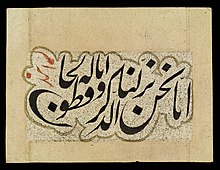 انا نحن نزلنا الذکر و انا له لحافظون